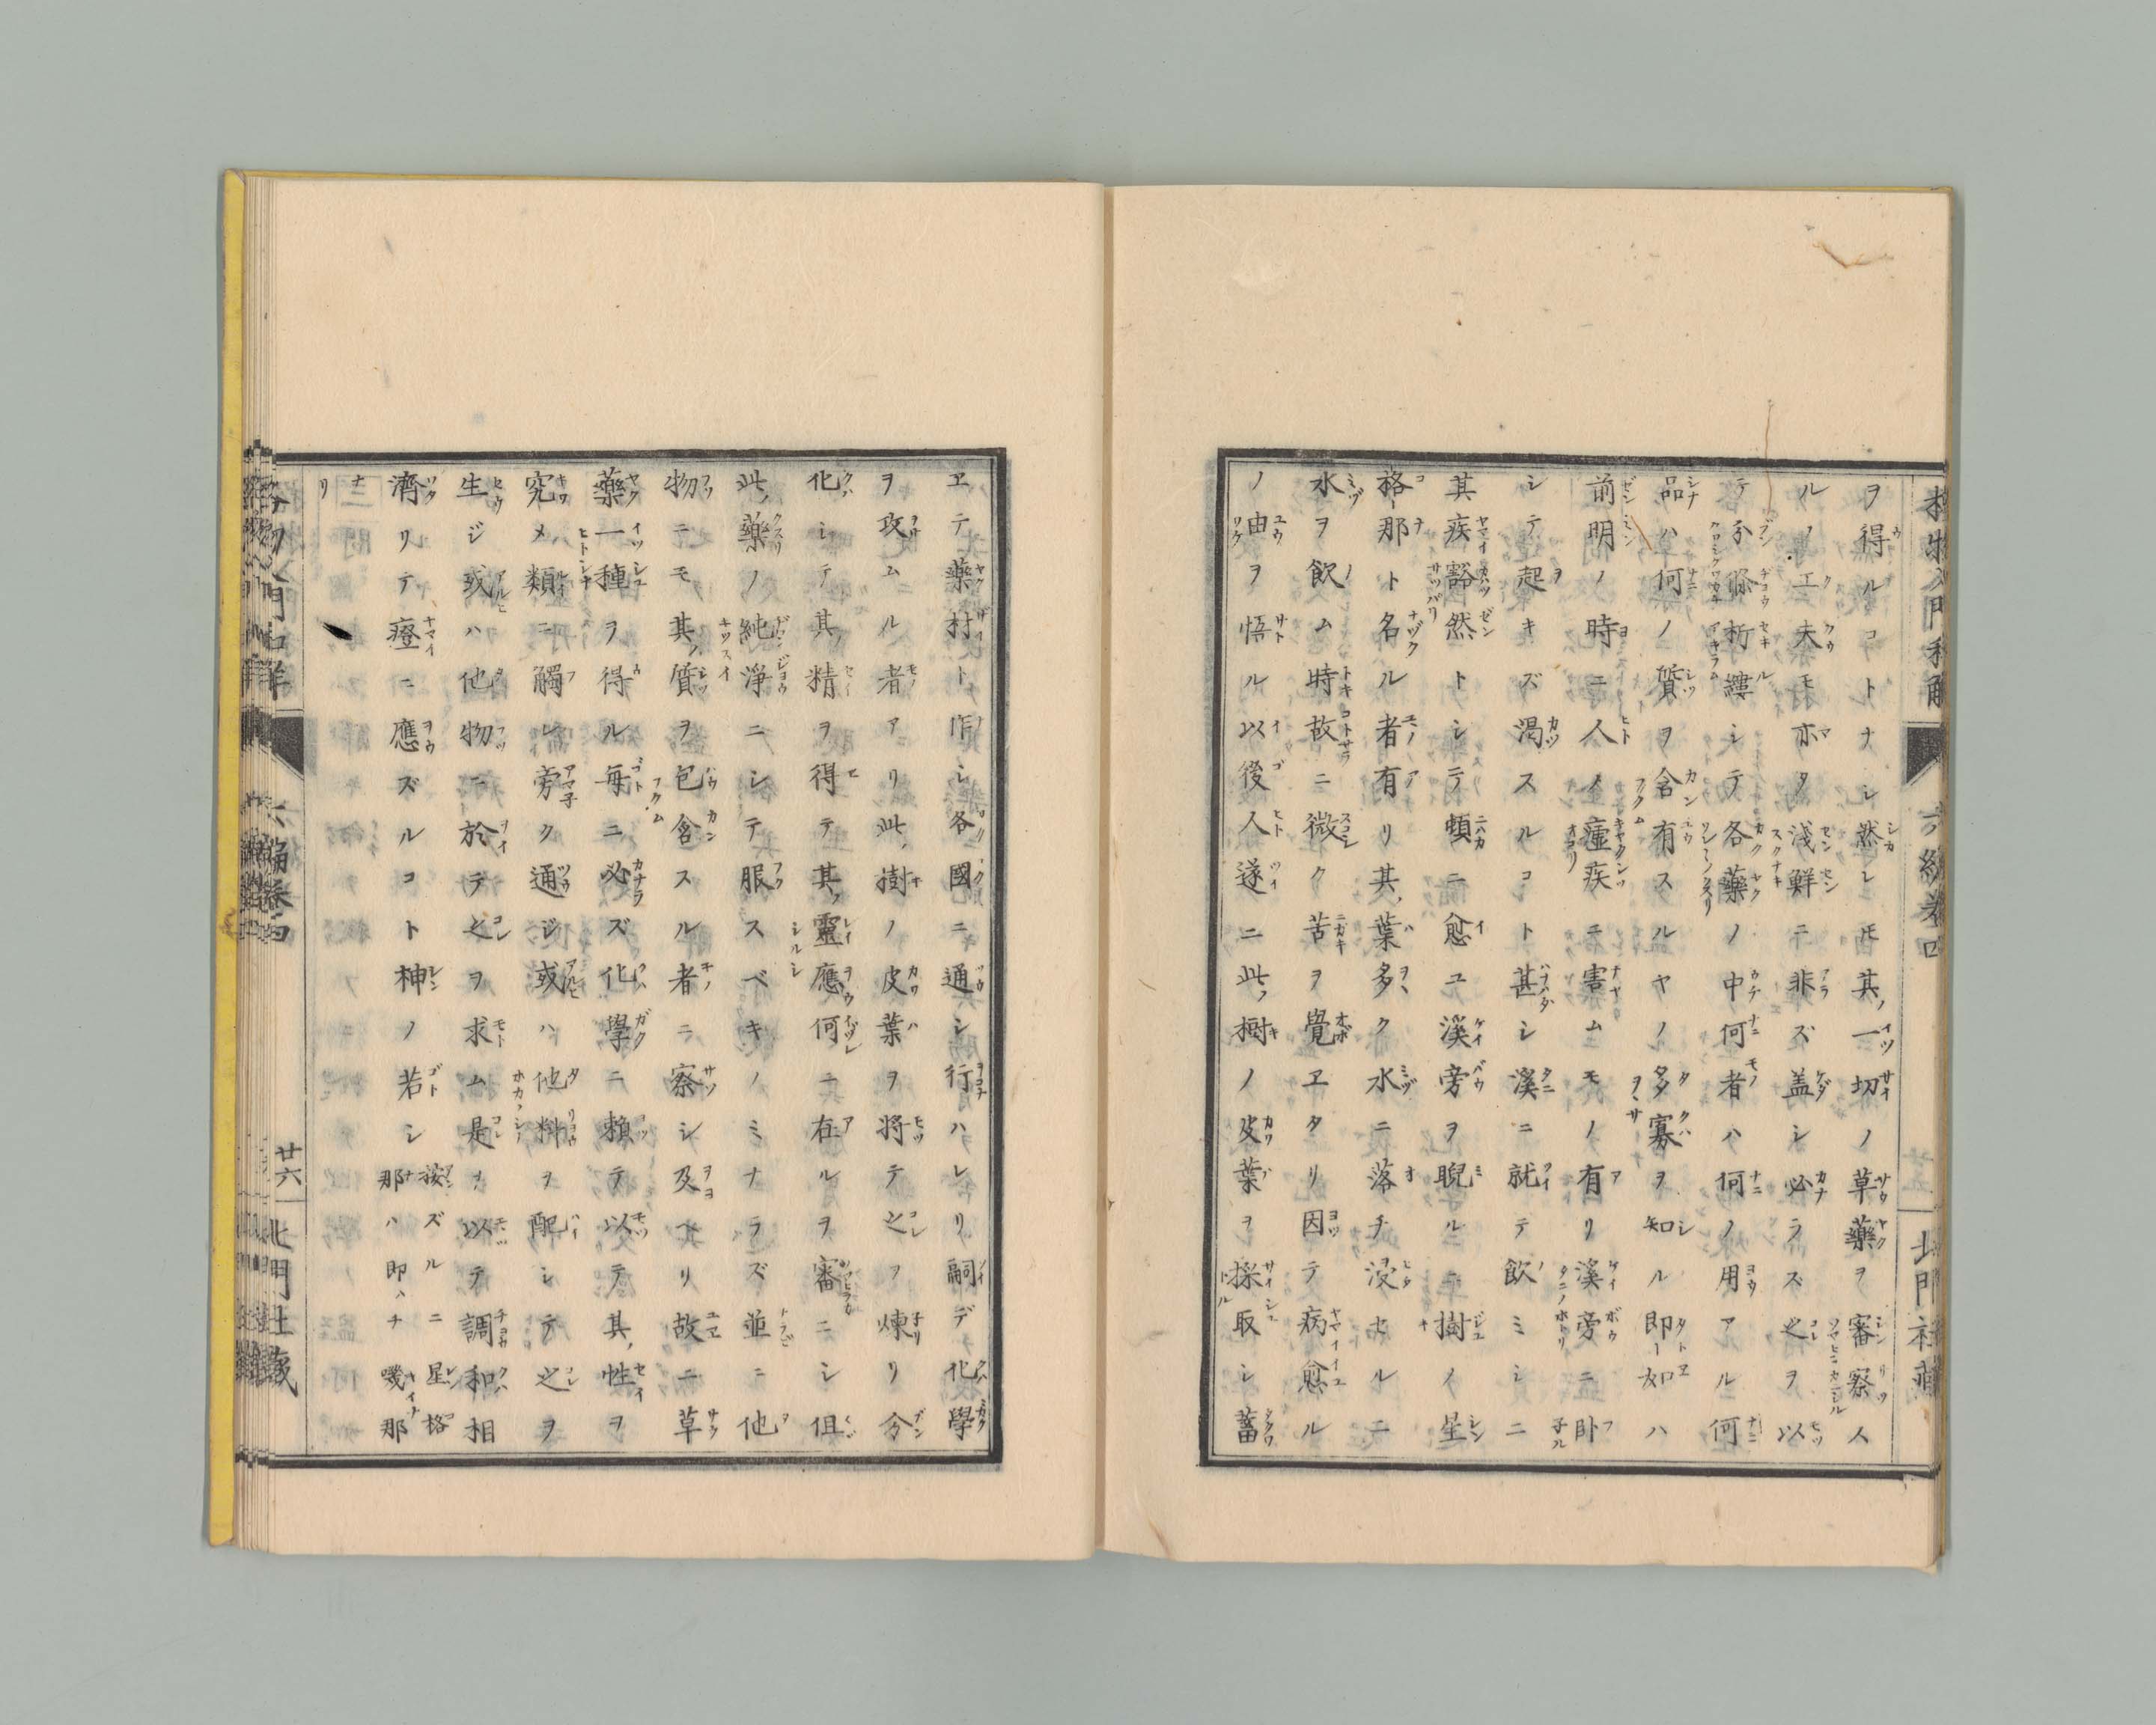 ヲ得ルコトナシ然レモ其一切ノ草藥ヲ審察人
ルノ工夫モ亦タ淺鮮ニ非ズ盖シ必ラズ之ヲ以
テ分條析縷シテ各藥ノ中何者ハ何ノ用アル何
品ハ何ノ質ヲ含有スルヤノ多寡ヲ知ル即如ハ
前明ノ時ニ人ノ瘧疾ニ害ムモノ有リ溪旁ニ卧
シテ起キズ渴スルコト甚シ溪ニ就テ飲ミシニ
其疾豁然トシテ頓ニ愈ユ溪旁ヲ睨ルニ樹ノ星
格那ト名ル者有リ其葉多ク水ニ落チ浸セルニ
水ヲ飲ム時故ニ微ク苦ヲ覺ヱタリ因テ病愈ル
ノ由ヲ悟ル以後人遂ニ此樹ノ皮葉ヲ採取シ蓄
ヱテ藥材ト作シ各國ニ通シ行ハレリ嗣デ化學
ヲ攻ムル者アリ此樹ノ皮葉ヲ將テ之ヲ煉リ分
化シテ其精ヲ得テ其靈應何ニ在ルヲ審ニシ但
此藥ノ純淨ニシテ服スベキノミナラズ並ニ他
物ニモ其質ヲ包含スル者ニ察シ及ヘリ故ニ草
藥一種ヲ得ル毎ニ必ズ化學ニ賴テ以テ其性ヲ
究メ類ニ觸レ旁ク通ジ或ハ他料ヲ配シテ之ヲ
生ジ或ハ他物ニ於テ之ヲ求ム是ヲ以テ調和相
濟リテ癥ニ應ズルコト神ノ若シ按ズルニ星格
那ハ即ハチ幾那
ナリ
六編卷四
廿六
北門社藏